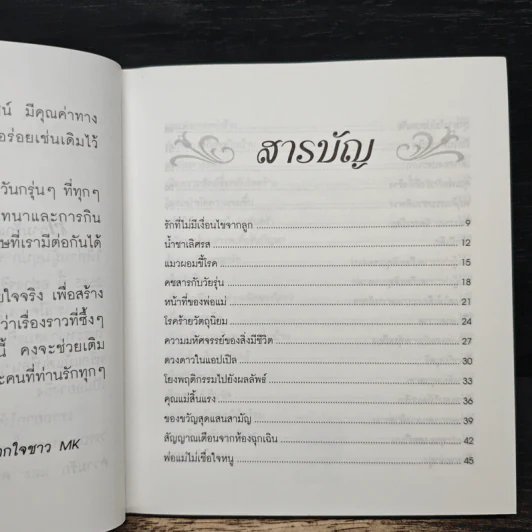 น์ มีคุณค่าทาง
อร่อยเช่นเดิมไว้
วันกรุ่นๆ ที่ทุกๆ
ทนาและการกิน
ษที่เรามีต่อกันได้
ยใจจริง เพื่อสร้าง
ว่าเรื่องราวที่ซึ้งๆ
นี้ คงจะช่วยเติม
ะคนที่ท่านรักทุกๆ
กใจชาว MK
สารบัญ
รักที่ไม่มีเงื่อนไขจากลูก 9
น้ำชาเลิศรส 12
แมวผอมขี้โรค 15
คชสารกับวัยรุ่น 18
หน้าที่ของพ่อแม่ 21
โรคร้ายวัตถุนิยม 24
ความมหัศจรรย์ของสิ่งมีชีวิต 27
ดวงดาวในแอปเปิล 30
โยงพฤติกรรมไปยังผลลัพธ์ 33
คุณแม่สิ้นแรง 36
ของขวัญสุดแสนสามัญ 39
สัญญาณเตือนจากห้องฉุกเฉิน 42
พ่อแม่ไม่เชื่อใจหนู 45